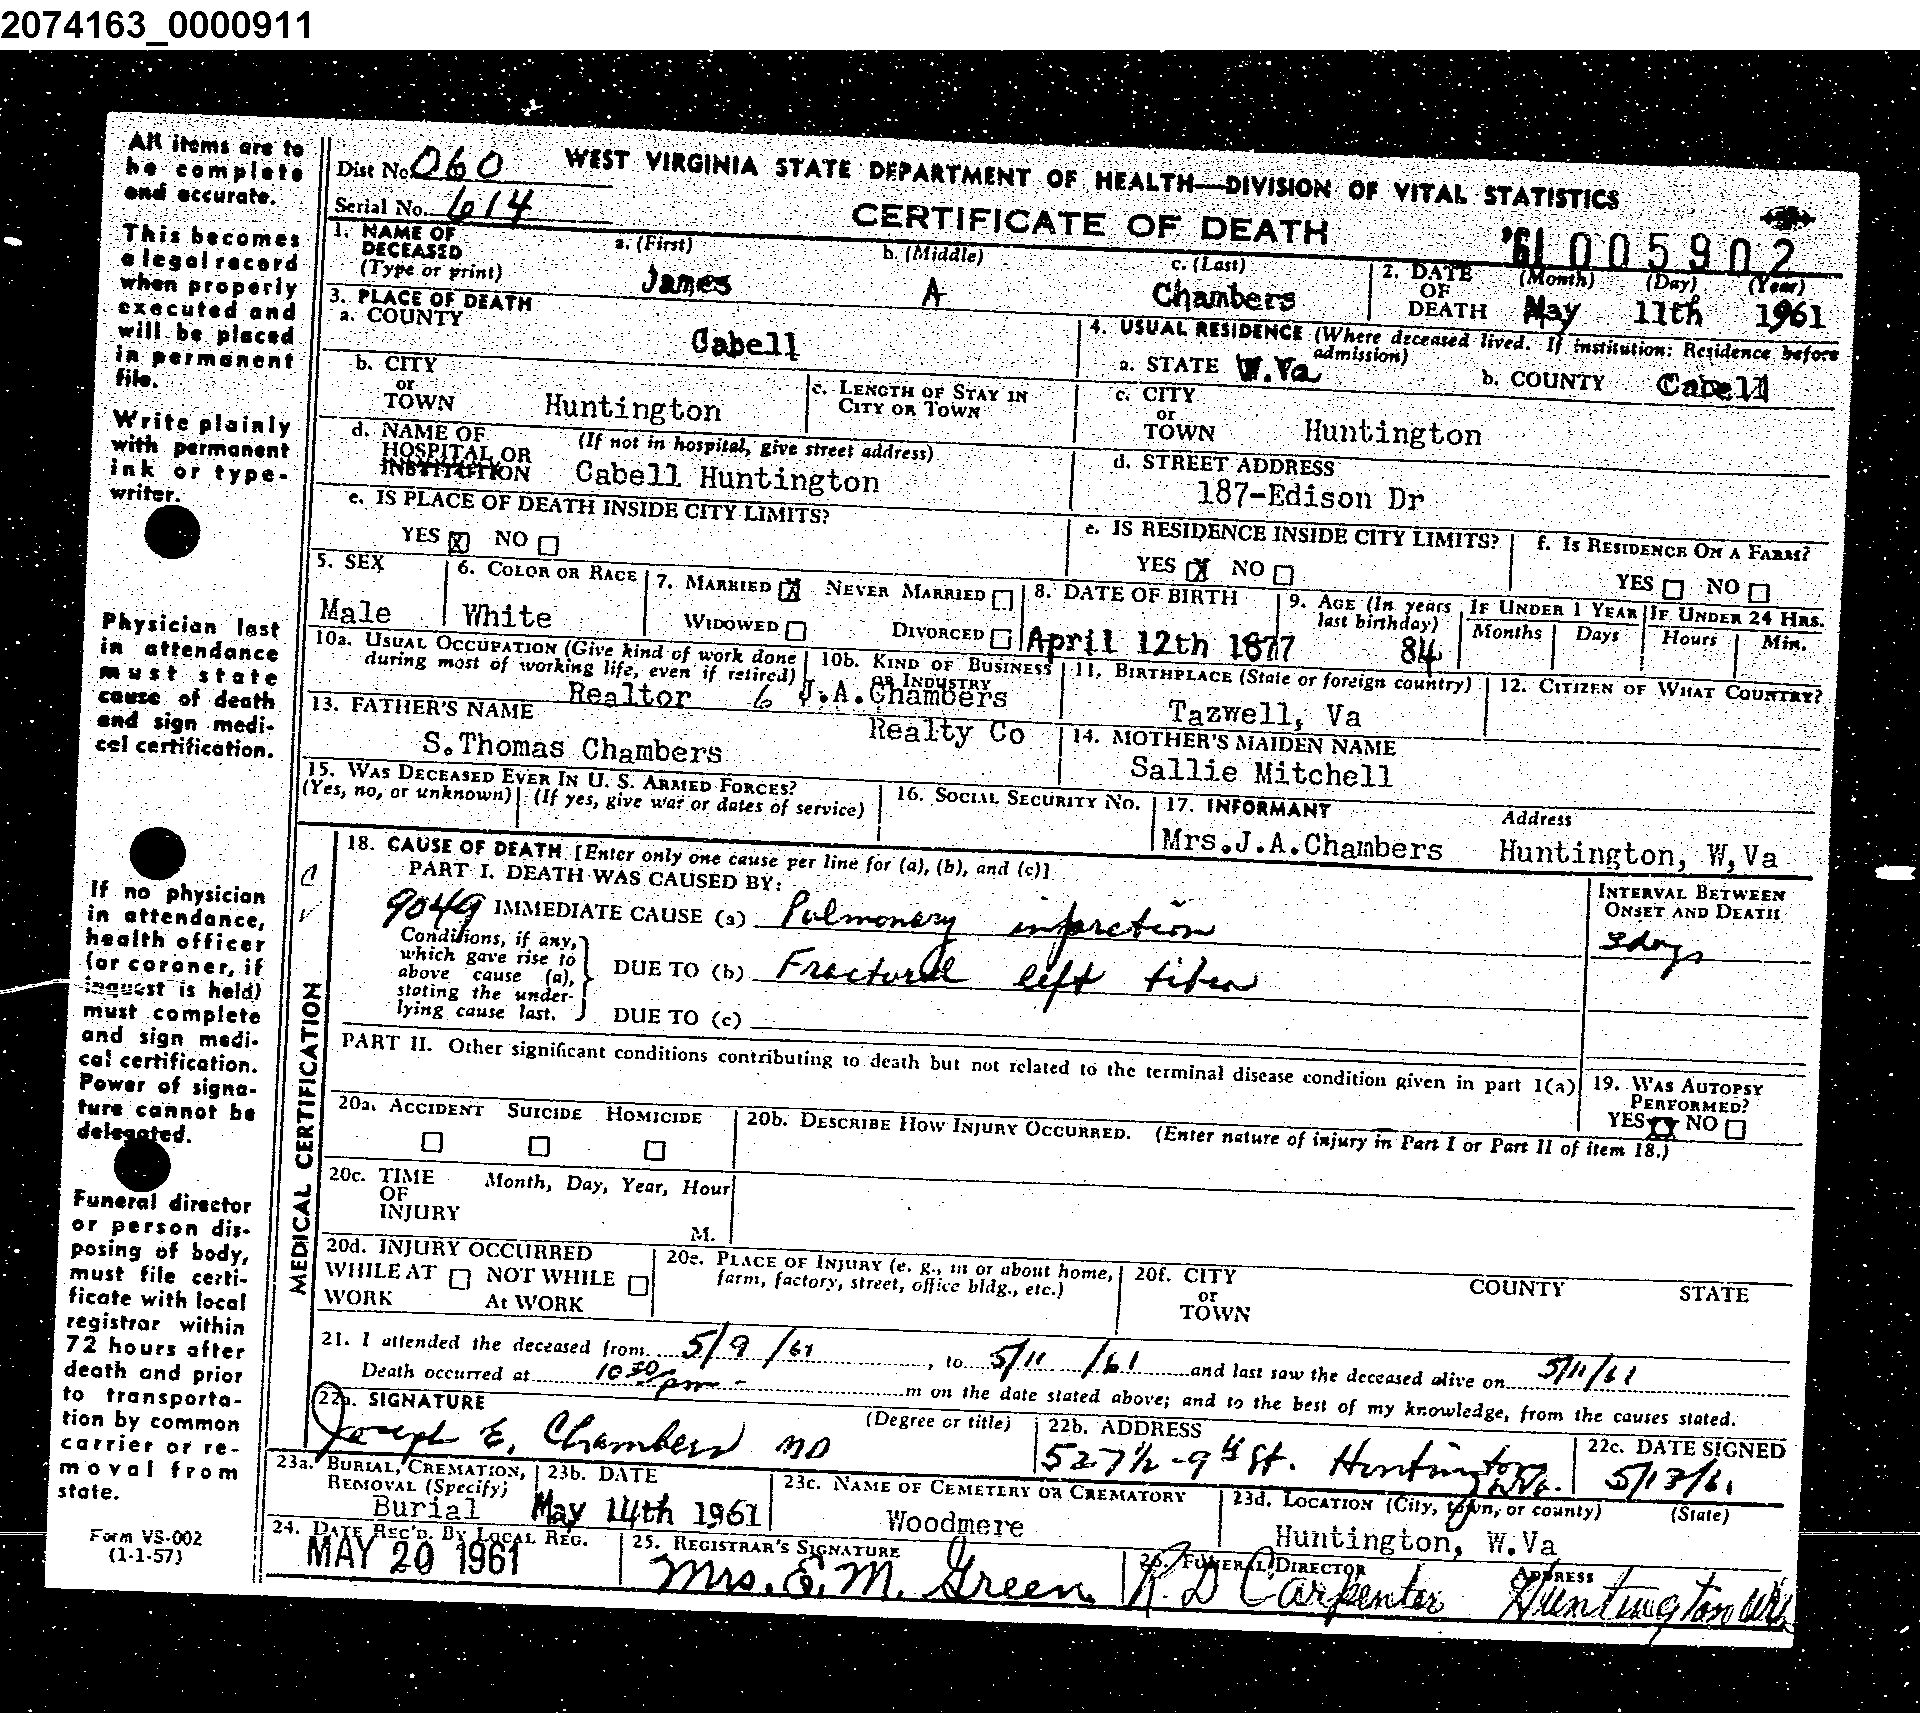 2074163_0000911
All items are to be complete and accurate.
This becomes a legal record when properly executed and will be placed in permanent file.
Write plainly with permanent ink or typewriter.
Physician last in attendance must state cause of death and sign medical certification.
If no physician in attendance, health officer (or coroner, if inquest is held) must complete and sign medical certification. Power of signature cannot be delegated.
Funeral director or person disposing of body, must file certificate with local registrar within 72 hours after death and prior to transportation by common carrier or removal from state.
Form VS-002
(1-1-57)
Dist No. 060
WEST VIRGINIA STATE DEPARTMENT OF HEALTH—DIVISION OF VITAL STATISTICS
Serial No. 614
CERTIFICATE OF DEATH
'61 005902
1. NAME OF DECEASED (Type or print) a. (First) James b. (Middle) A c. (Last) Chambers
2. DATE OF DEATH (Month) May (Day) 11th (Year) 1961
3. PLACE OF DEATH
a. COUNTY Cabell
4. USUAL RESIDENCE (Where deceased lived. If institution: Residence before admission)
a. STATE W.Va b. COUNTY Cabell
b. CITY or TOWN Huntington
c. LENGTH OF STAY IN CITY OR TOWN
c. CITY or TOWN Huntington
d. NAME OF HOSPITAL OR INSTITUTION (If not in hospital, give street address) Cabell Huntington
d. STREET ADDRESS 187-Edison Dr
e. IS PLACE OF DEATH INSIDE CITY LIMITS?
YES X NO
e. IS RESIDENCE INSIDE CITY LIMITS?
YES X NO
f. IS RESIDENCE ON A FARM?
YES NO
5. SEX Male
6. COLOR OR RACE White
7. MARRIED X NEVER MARRIED
WIDOWED DIVORCED
8. DATE OF BIRTH April 12th 1877
9. AGE (In years last birthday) 84
IF UNDER 1 YEAR Months Days
IF UNDER 24 HRS. Hours Min.
10a. USUAL OCCUPATION (Give kind of work done during most of working life, even if retired) Realtor 6
10b. KIND OF BUSINESS OR INDUSTRY J.A.Chambers Realty Co
11. BIRTHPLACE (State or foreign country) Tazwell, Va
12. CITIZEN OF WHAT COUNTRY?
13. FATHER'S NAME S.Thomas Chambers
14. MOTHER'S MAIDEN NAME Sallie Mitchell
15. WAS DECEASED EVER IN U. S. ARMED FORCES?
(Yes, no, or unknown) (If yes, give war or dates of service)
16. SOCIAL SECURITY NO.
17. INFORMANT Mrs.J.A.Chambers Address Huntington, W,Va
MEDICAL CERTIFICATION
18. CAUSE OF DEATH [Enter only one cause per line for (a), (b), and (c)]
PART I. DEATH WAS CAUSED BY:
9049 IMMEDIATE CAUSE (a) Pulmonary infarction
Conditions, if any, which gave rise to above cause (a), stating the underlying cause last.
DUE TO (b) Fractured left tibia
DUE TO (c)
INTERVAL BETWEEN ONSET AND DEATH
3 days
PART II. Other significant conditions contributing to death but not related to the terminal disease condition given in part 1(a)
19. WAS AUTOPSY PERFORMED?
YES NO
20a. ACCIDENT SUICIDE HOMICIDE
20b. DESCRIBE HOW INJURY OCCURRED. (Enter nature of injury in Part I or Part II of item 18.)
20c. TIME OF INJURY Month, Day, Year, Hour M.
20d. INJURY OCCURRED
WHILE AT WORK NOT WHILE At WORK
20e. PLACE OF INJURY (e. g., in or about home, farm, factory, street, office bldg., etc.)
20f. CITY or TOWN COUNTY STATE
21. I attended the deceased from 5/9/61, to 5/11/61 and last saw the deceased alive on 5/11/61
Death occurred at 10 30 pm - m on the date stated above; and to the best of my knowledge, from the causes stated.
22a. SIGNATURE (Degree or title) Joseph E. Chambers MD
22b. ADDRESS 527 1/2 - 9th St. Huntington W.Va.
22c. DATE SIGNED 5/13/61
23a. BURIAL, CREMATION, REMOVAL (Specify) Burial
23b. DATE May 14th 1961
23c. NAME OF CEMETERY OR CREMATORY Woodmere
23d. LOCATION (City, town, or county) (State) Huntington, W.Va
24. DATE REC'D. BY LOCAL REG. MAY 20 1961
25. REGISTRAR'S SIGNATURE Mrs. E. M. Green
26. FUNERAL DIRECTOR R D Carpenter ADDRESS Huntington W.Va